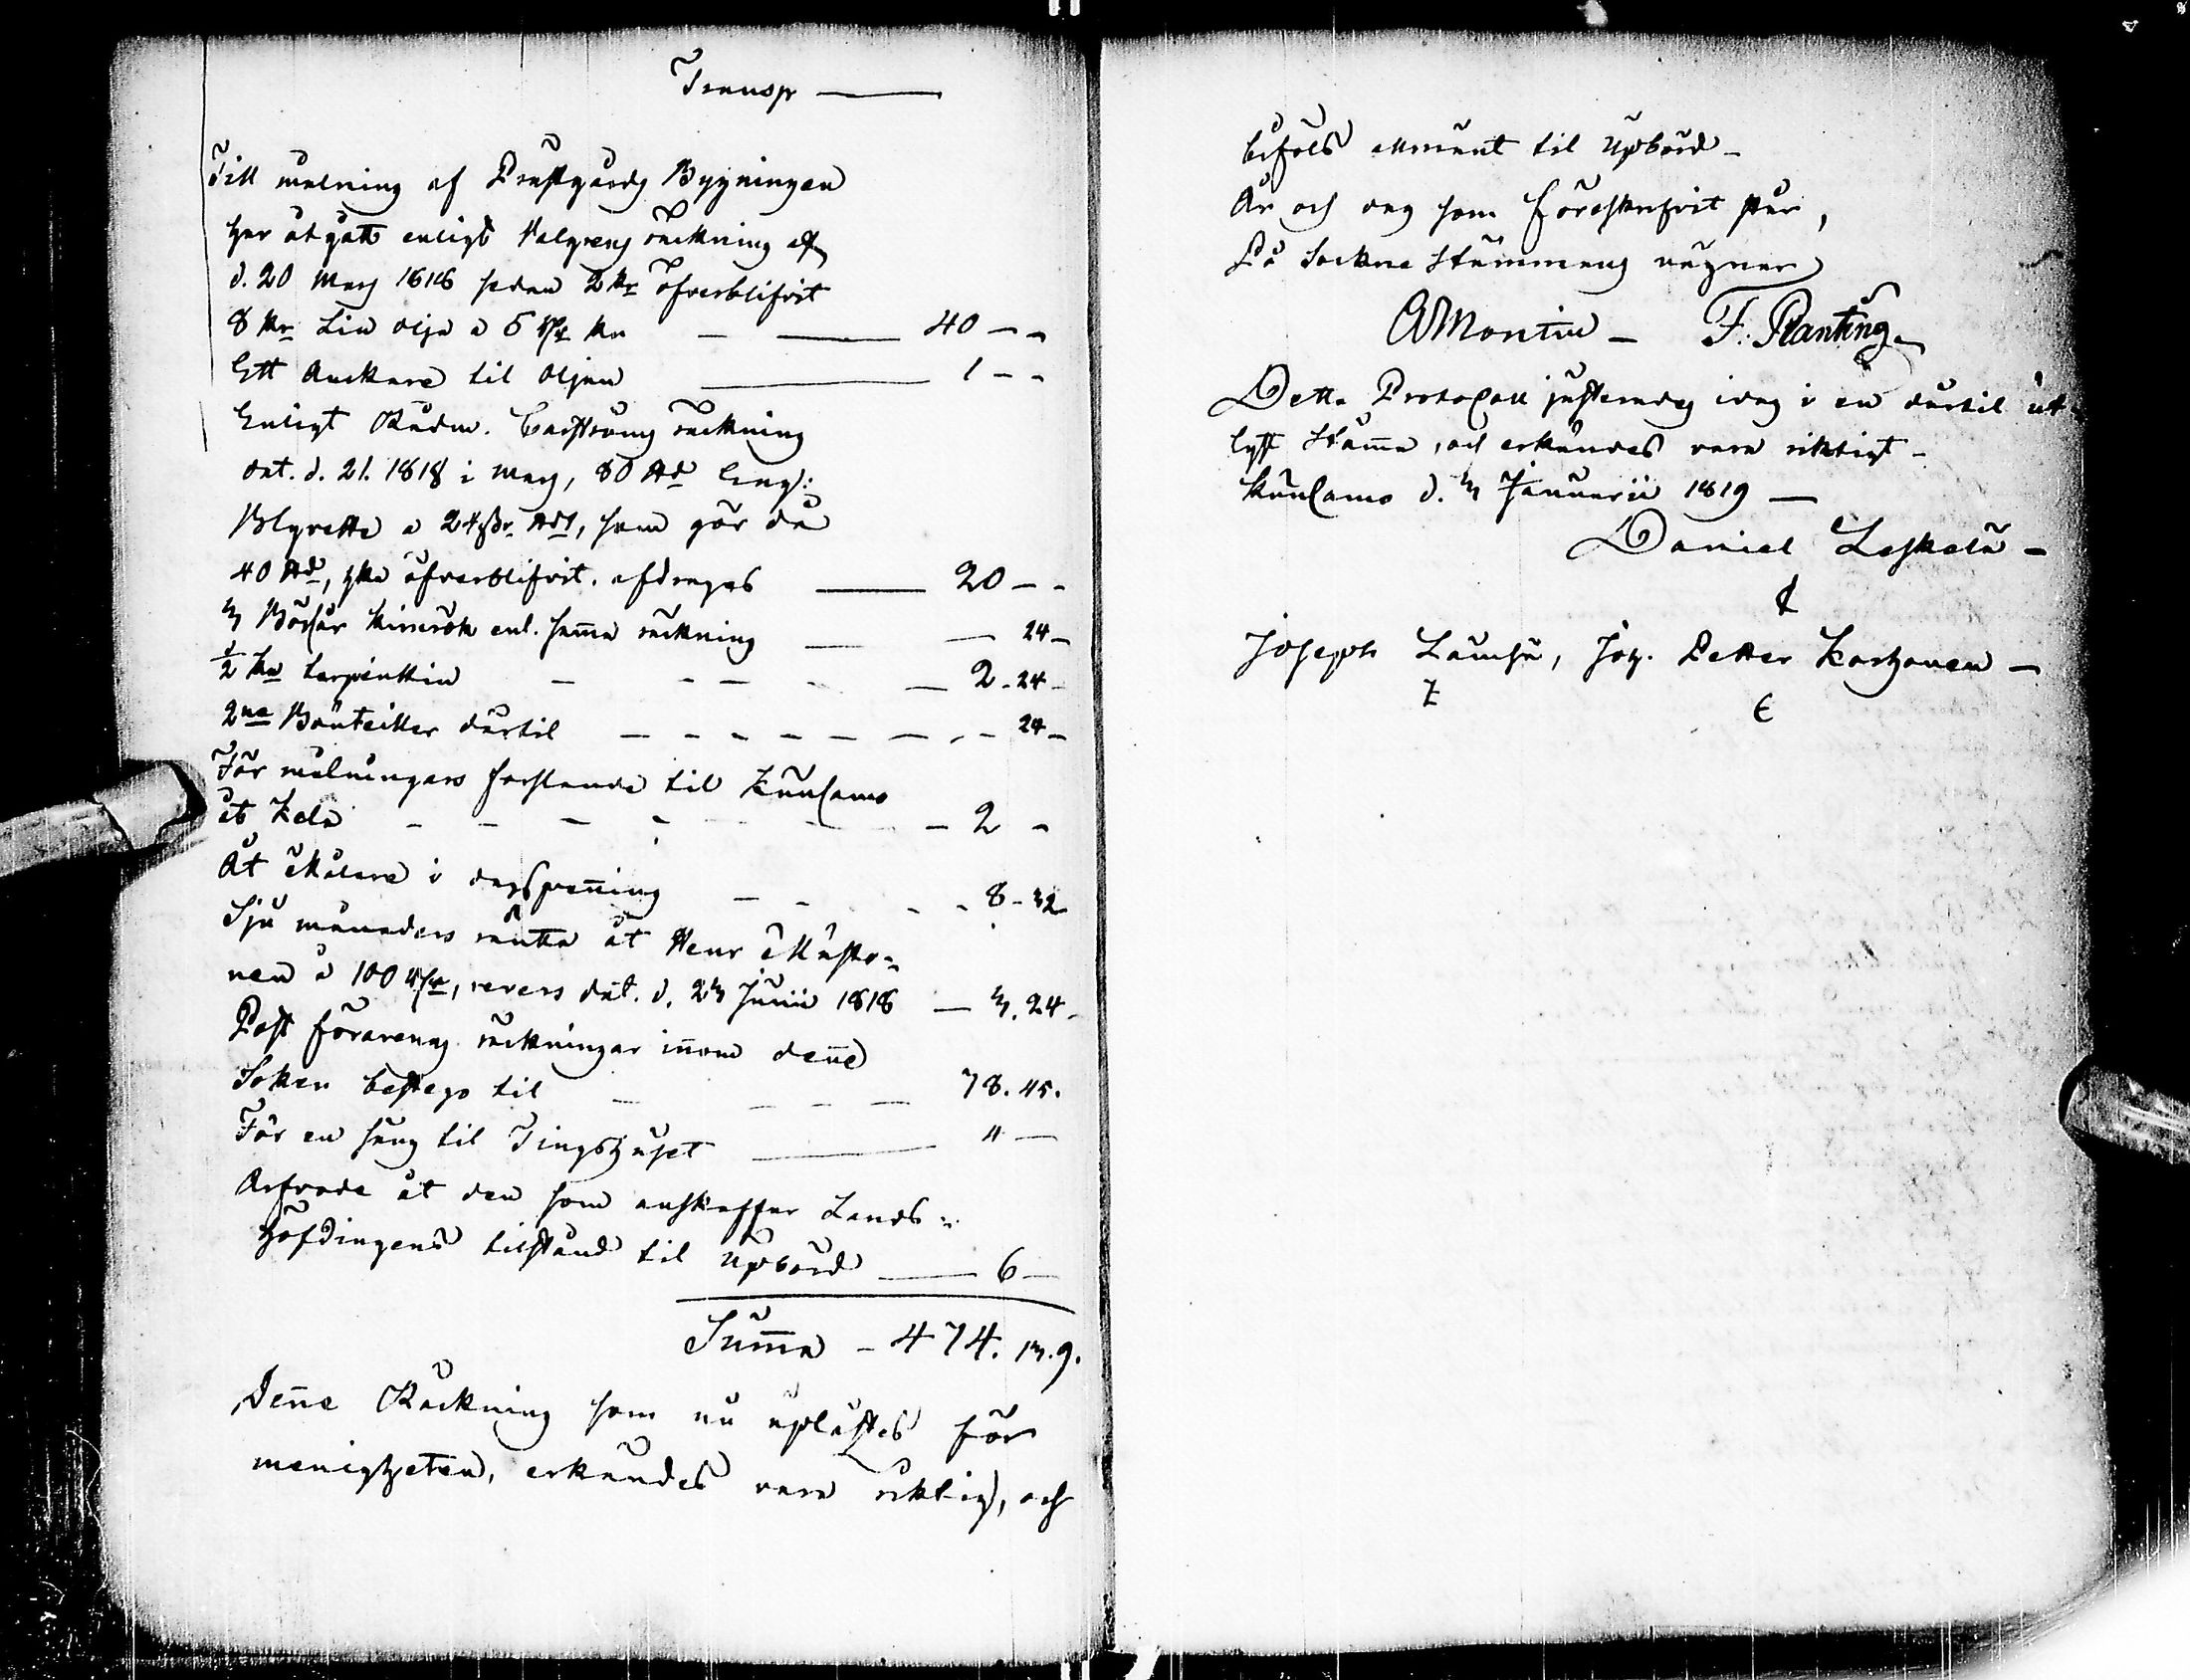 Transp ———
Till målning af Prestgårds Bygningen
har åtgått enligt Valgrens räckning af
d. 20 Marz 1818 sedan 2 kr öfverblifvit
8 kr Lin olja a 5 kn — — 40 — -
Ett Anckare til Oljan — 1 - -
Enligt Rådm. räckning
dat. d. 21. 1818 i Marz, 80 Engl:
Blyvitt a 24 , som gör då
40 , öfverblifvit. afdrages — 20 - -
3 Böszar kimrök enl. samma räckning — — 24 -
1/2 kn terpentin — - - - — 2 - 24 -
2ne Bouteiller därtil — - - - - - - - 24 -
För målningars forslande til Kuusamo
åt Kela - - - - - - 2 -
Åt Målare i dagspenning - - - - 8 - 32
Sju månaders ränta åt Henr Määtte-
nen a 100 , revers dat. d. 23 Junii 1818 — 3. 24.
Post förarens räckningar inom denne
Sokn bestego til - - - — 78. 45.
För en säng til Tingshuset — 4 —
Arfvode åt den som anskaffar Lands-
höfdingens tilstånd til Upbörd — 6 —
Summa - 474. 13. 9.
Denne Räckning som nu uplästes för
menigheten, erkändes vara riktig, och
bifols allmänt til Upbörd -
År och dag som föreskrifvit står,
På Sockne Stämmans vägnar
A Montin - F. Planting
Detta Protocoll justerades idag i en därtil ut-
lyst Stämma, och erkändes vara riktigt -
Kuusamo d. 3 Januarii 1819 —
Daniel Leskelä -
Joseph Lämsä, Joh. Petter Korhonen -